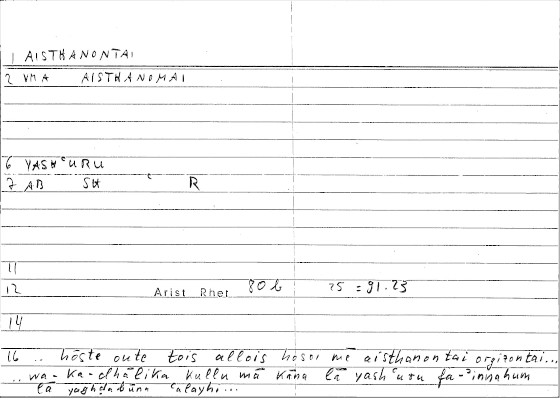 1 AISTHANONTAI
2 VMA AISTHANOMAI
6 YASHʿURU
7 AB SH ʿ R
11
12 Arist Rher 80b 25 = 91.23
14
16 .. hōste oute tois allois hosoi mē aisthanontai orgizontai...
.. wa-ka-dhālika kullu mā kāna lā yashʿuru fa-ʾinnahum
lā yaghdabūna ʿalayhi...